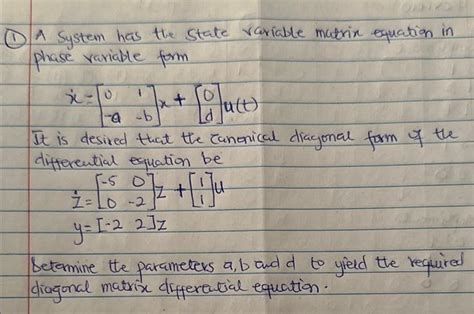 ① A system has the state variable matrix equation in
phase variable form
ẋ = [0 1
-a -b] x + [0
d] u(t)
It is desired that the canonical diagonal form of the
differential equation be
ż = [-5 0
0 -2] z + [1
1] u
y = [-2 2]z
Determine the parameters a, b and d to yield the required
diagonal matrix differential equation.